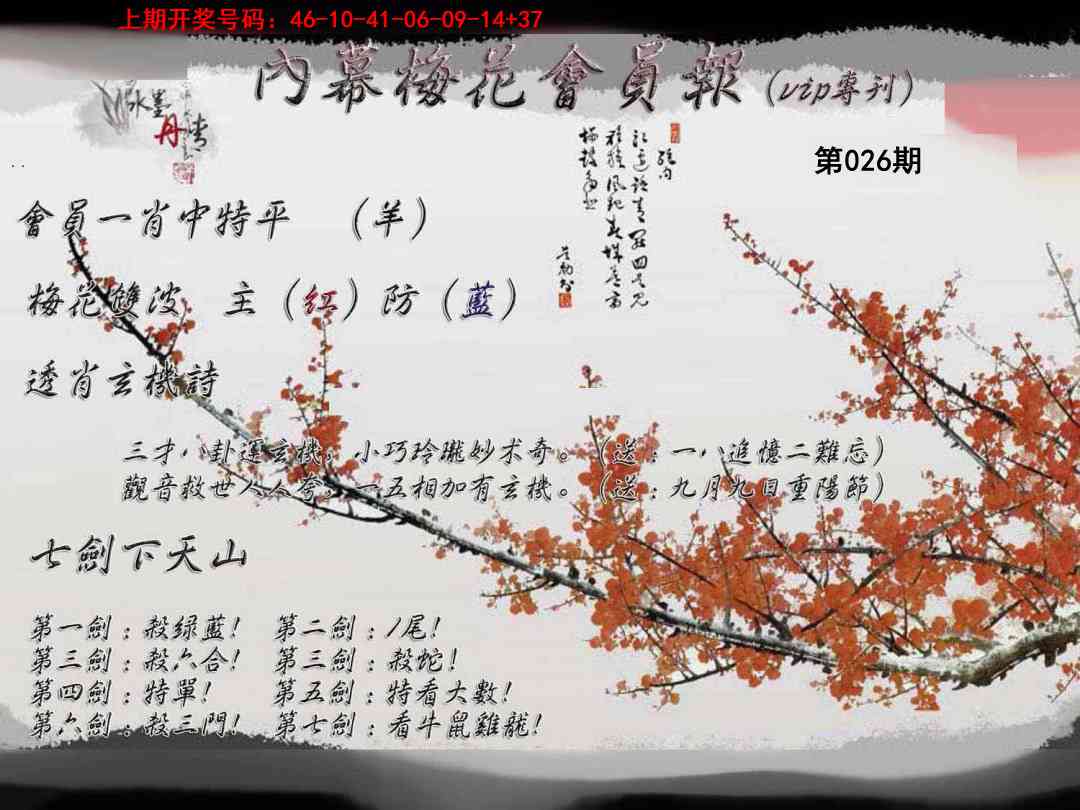 上期开奖号码：46-10-41-06-09-14+37
內幕梅花會員報（vip專刊）
水墨
丹青
第026期
會員一肖中特平 （羊）
梅花雙波 主（红）防（藍）
透肖玄機詩
三才八卦運玄機，小巧玲瓏妙术奇。（送：一八追憶二難忘）
觀音救世人人夸，一五相加有玄機。（送：九月九日重陽節）
七劍下天山
第一劍：殺绿藍！ 第二劍：1尾！
第三劍：殺六合！ 第三劍：殺蛇！
第四劍：特單！ 第五劍：特看大數！
第六劍：殺三門！ 第七劍：看牛鼠雞龍！